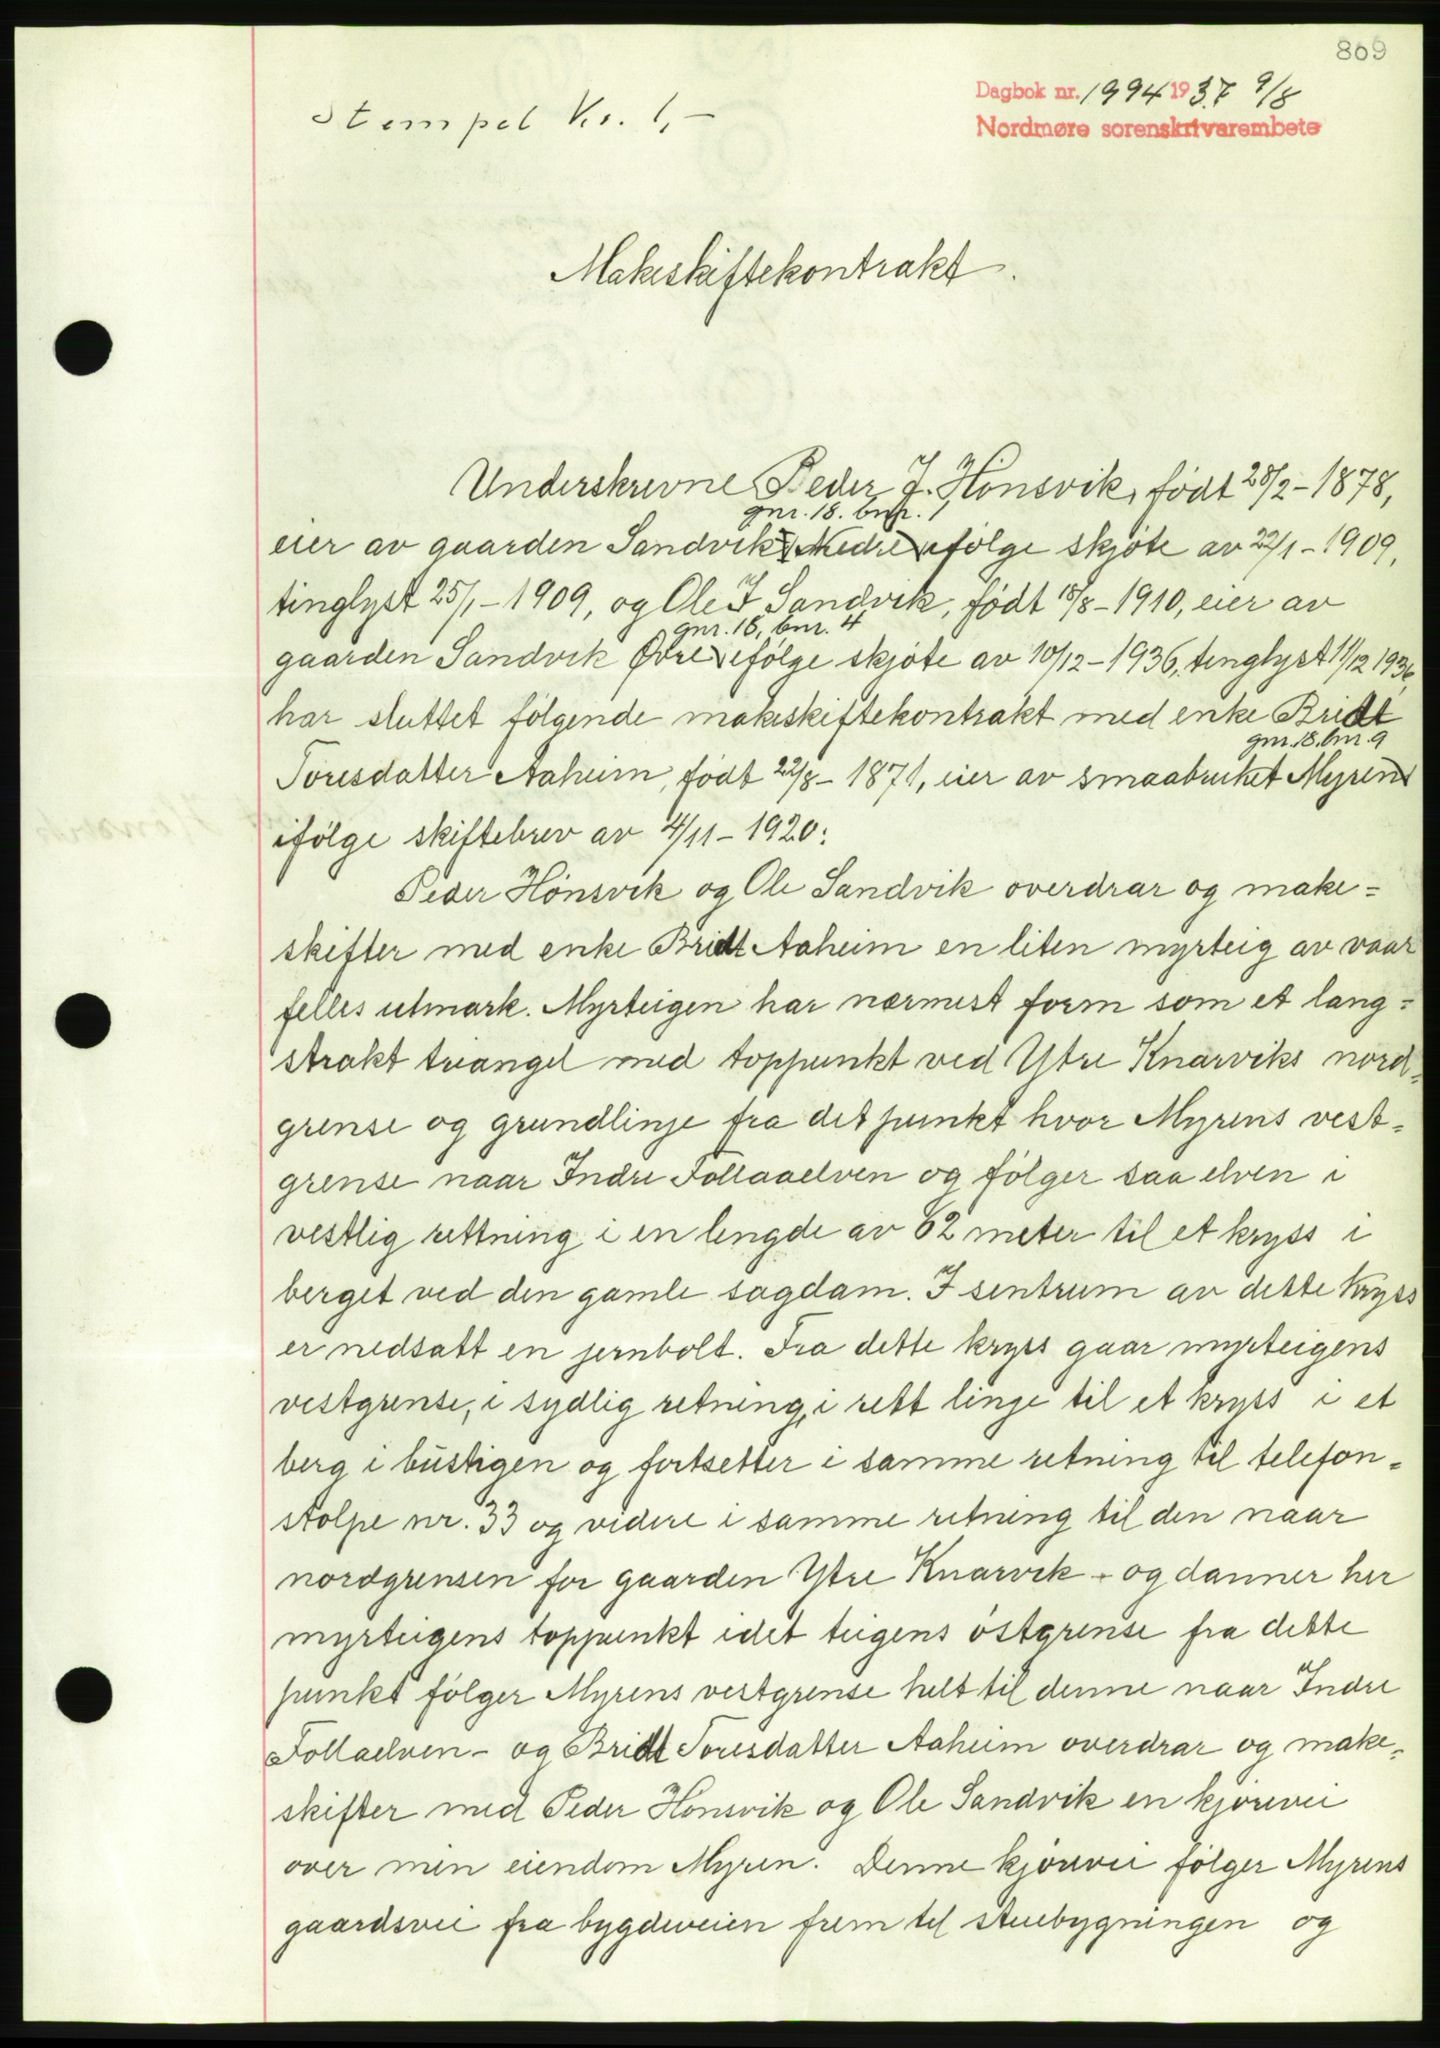 809
Dagbok nr. 1994 1937 9/8
Nordmøre sorenskrivarembete
Stempel Kr. 1,-
Makeskiftekontrakt.
Underskrevne Peder J. Hónsvik, født 28/2-1878,
gnr. 18. bnr. 1
eier av gaarden Sandvik Nedre ifølge skjøte av 22/1-1909,
tinglyst 25/1-1909, og Ole J Sandvik, født 18/8-1910, eier av
gnr. 18, bnr. 4
gaarden Sandvik Øvre ifølge skjøte av 10/12-1936, tinglyst 11/12 1936,
har sluttet følgende makeskiftekontrakt med enke Bridt
gnr. 18. bnr. 9
Toresdatter Aaheim, født 22/8-1871, eier av smaabruket Myren
ifølge skiftebrev av 4/11-1920:
Peder Hónsvik og Ole Sandvik overdrar og make=
skifter med enke Bridt Aaheim en liten myrteig av vaar
felles utmark. Myrteigen har nærmest form som et lang=
strakt triangel med toppunkt ved Ytre Knarviks nord=
grense og grundlinje fra det punkt hvor Myrens vest=
grense naar Indre Follaaelven og følger saa elven i
vestlig rettning i en lengde av 62 meter til et kryss i
berget ved den gamle sagdam. I sentrum av dette kryss
er nedsatt en jernbolt. Fra dette kryss gaar myrteigens
vestgrense, i sydlig retning, i rett linje til et kryss i et
berg i bustigen og fortsetter i samme retning til telefon=
stolpe nr. 33 og videre i samme retning til den naar
nordgrensen for gaarden Ytre Knarvik - og danner her
myrteigens toppunkt idet teigens østgrense fra dette
punkt følger Myrens vestgrense helt til denne naar Indre
Follaelven - og Bridt Toresdatter Aaheim overdrar og make=
skifter med Peder Honsvik og Ole Sandvik en kjørevei
over min eiendom Myren. Denne kjørevei følger Myrens
gaardsvei fra bygdeveien frem til stuebygningen og